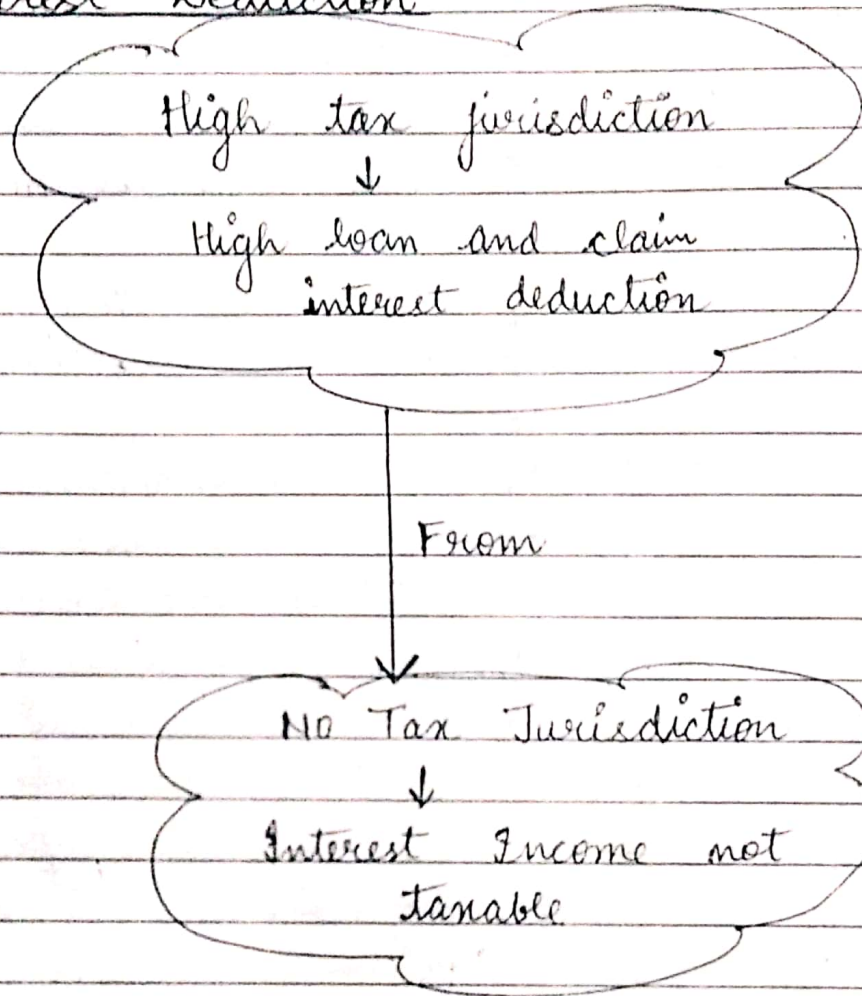 Deduction
High tax jurisdiction
↓
High loan and claim
interest deduction
From
No Tax Jurisdiction
↓
Interest Income not
taxable